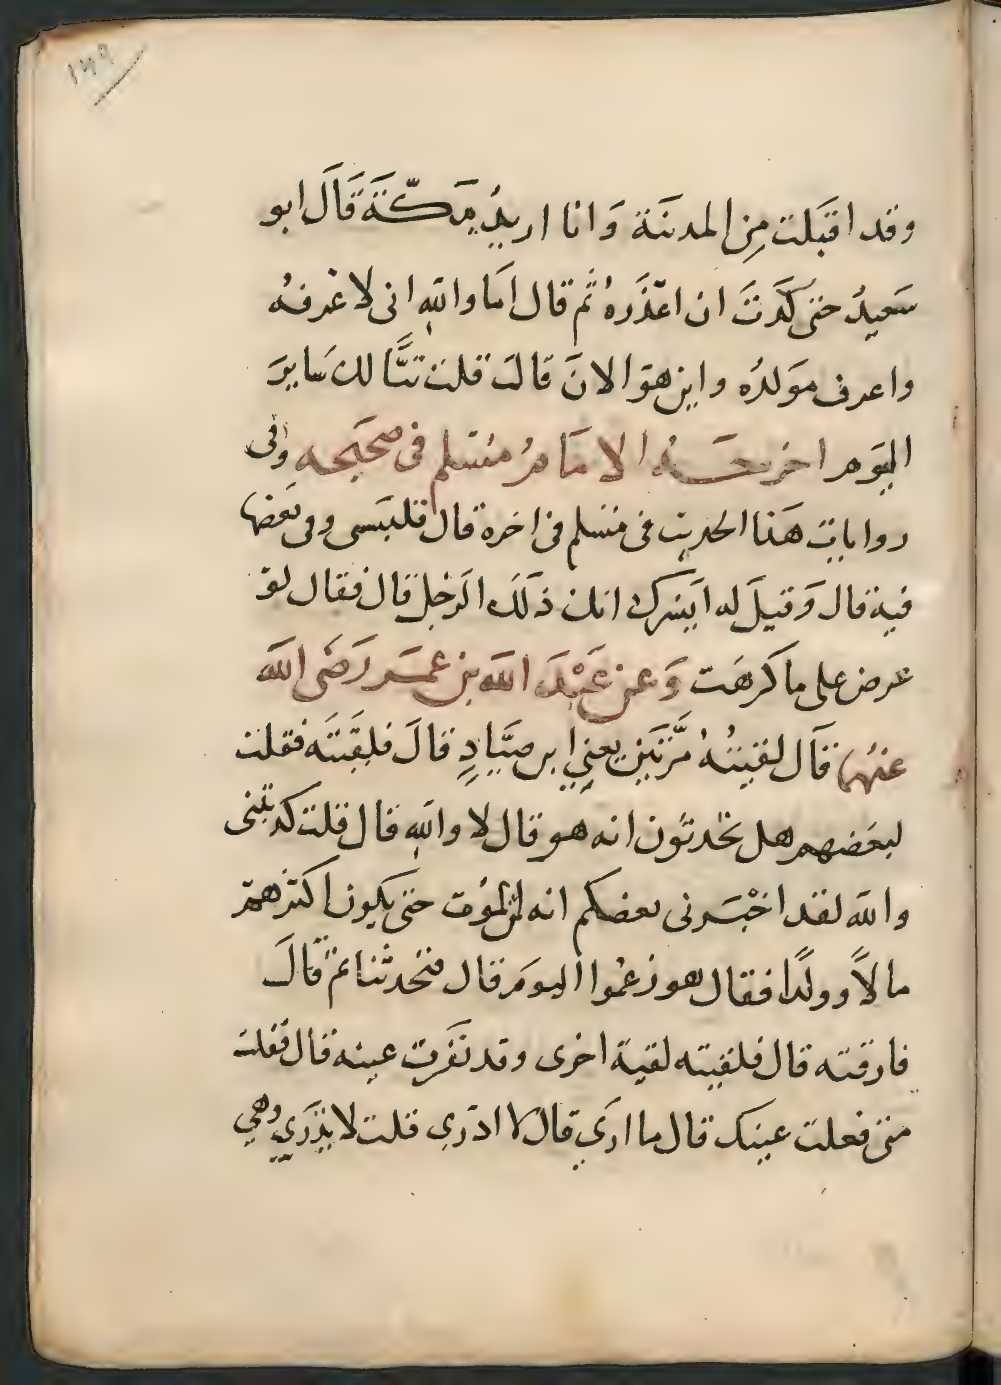 ١٣٩
وقد اقبَلت مِن المدنَة وَانا اريدُ مَكّةَ قَالَ ابو
سَعيدُ حتى كَدَتَ ان اعذَرهُ ثم قال امَا واللهِ انى لاعرفهُ
واعرف مَولدُه واين هوَ الانَ قالَت قلت تبًّا لك سَايرَ
اليَوم اخرجَهُ الامَامُ مسلم فى صحيحه وفى
روايات هَذا الحديث فى مسلم فى اخره قال فلبَسنى وفى بَعضها
فيه قال وَقيلَ له ايَسُرك انك ذلَك الرَجل قال فقال لو
عرض على ما كرهَت وَعن عَبْدَ اللهَ بن عمَر رَضى اللهَ
عنهُما قاَل لقيتُهُ مرَّتَين يعنِى ابن صيَّادٍ قالَ فلقَيتَه فقلت
لبعَضهم هل تحَدثوُن انه هو قال لا واللهِ قال قلت كذبتنى
والله لقد اخْبَرنى بعضكم انه لن يموُت حتى يكون اكثر همَ
مالاً وولدًا فقال هو زعمُوا اليومَ قال فتحَدثنا ثم قالَ
فارقته قال فلقيته لقية اخرى وقد نفَرت عينه قال فقلت
متى فعلت عينك قال ما ادرَي قال لا ادرَي قلت لا تدرَي وهي